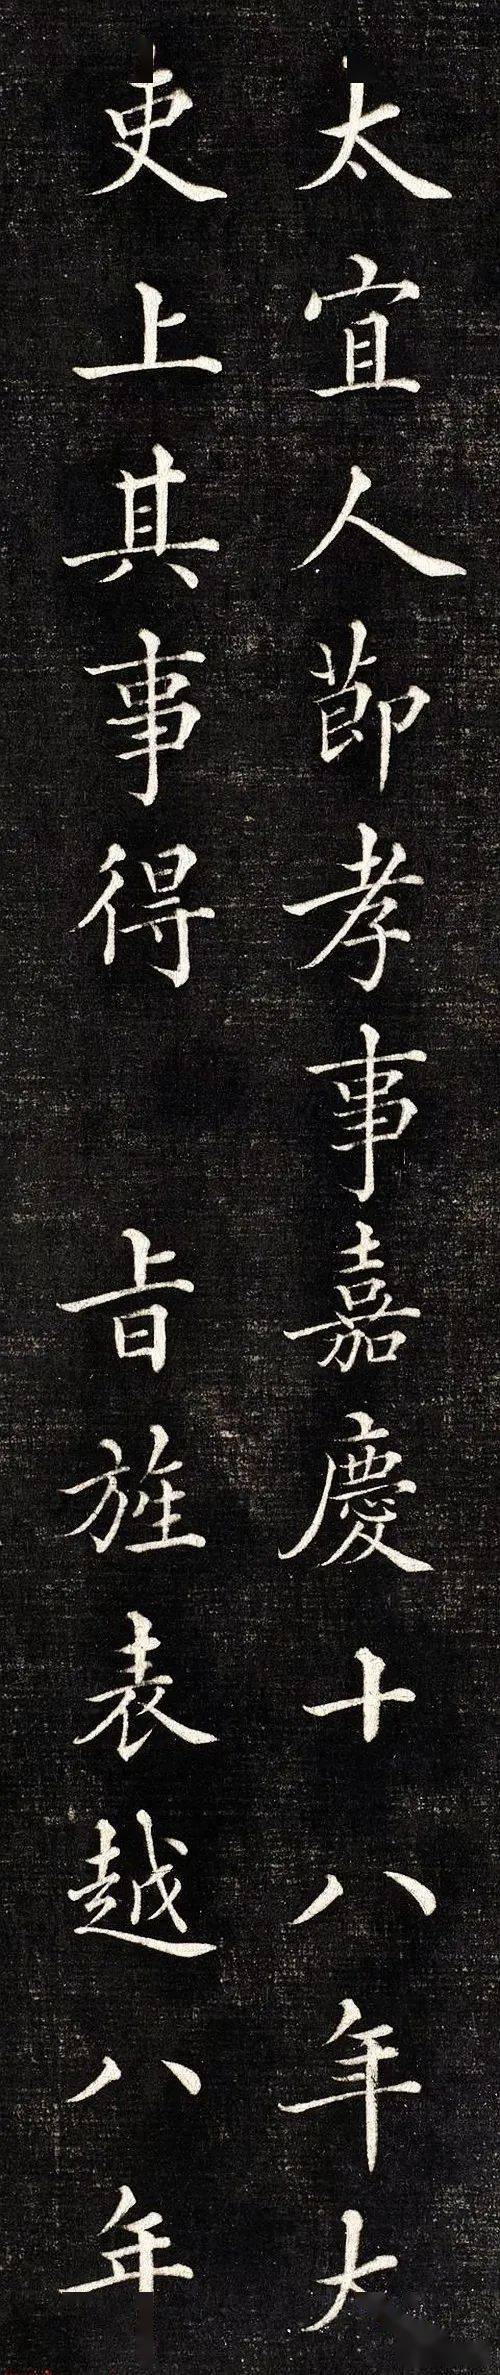 太宜人莭孝事嘉慶十八年大
吏上其事得 旨旌表越八年